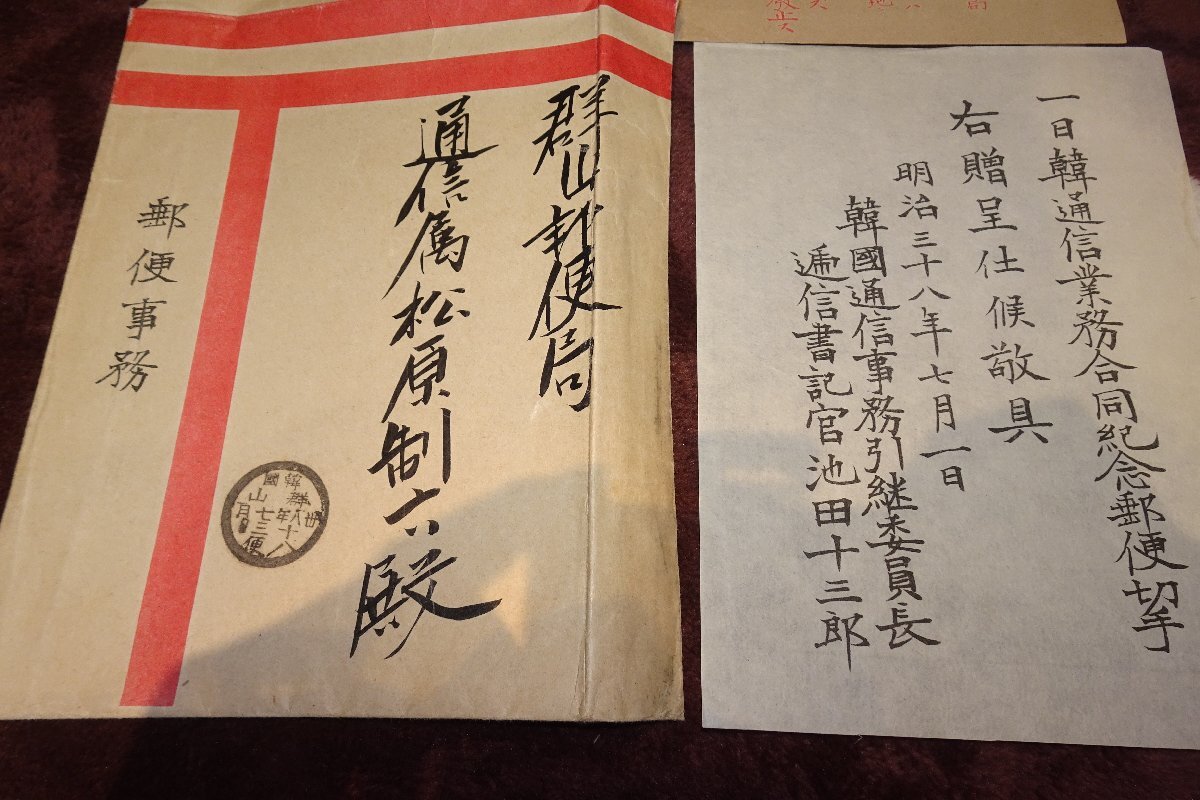 群山郵便局
通信属松原制六殿
郵便事務
韓國
群山
卅八年
七月
十八
三便
一日韓通信業務合同紀念郵便切手
右贈呈仕候敬具
明治三十八年七月一日
韓國通信事務引継委員長
逓信書記官池田十三郎